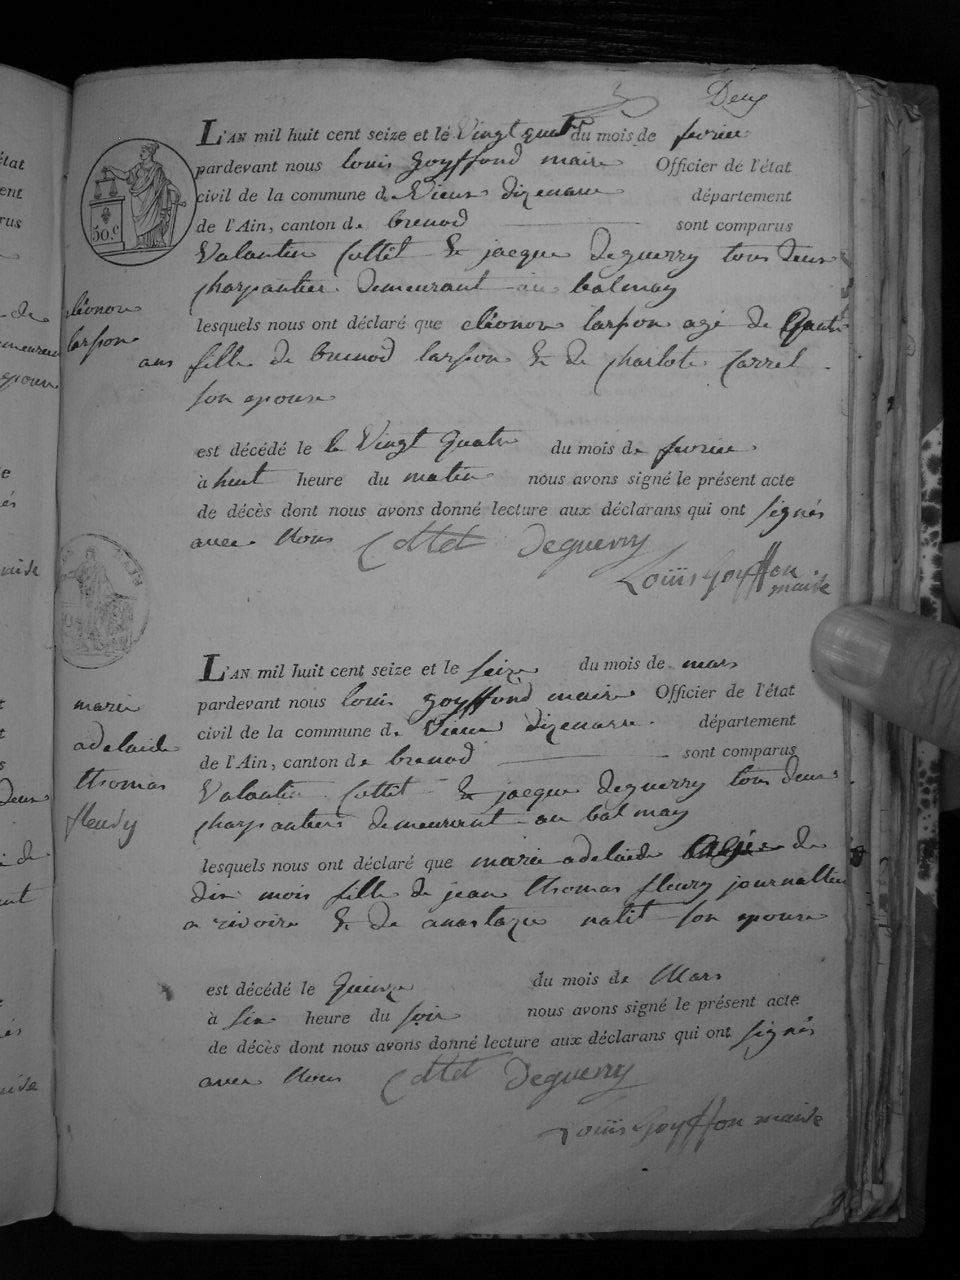 Deux
L'AN mil huit cent seize et le Vingt quatre du mois de fevrier
pardevant nous louis goyffond maire Officier de l'état
civil de la commune de Vieux dizenave département
50.c
de l'Ain, canton de brenod sont comparus
Valantin Cottet & jacque deguerry tous deux
charpantier demeurant au balmay
éléonor
larpon
lesquels nous ont déclaré que éléonor larpon agé de Quatre
ans fille de benod larpon & de charlote Carrel
son epouse
est décédé le le Vingt Quatre du mois de fevrier
à huit heure du matin nous avons signé le présent acte
de décès dont nous avons donné lecture aux déclarans qui ont signés
avec Nous Cottet Deguerry
Louiis Goyffon
maire
L'AN mil huit cent seize et le seize du mois de mars
pardevant nous louis goyffond maire Officier de l'état
civil de la commune de Vieux dizenave département
de l'Ain, canton de brenod sont comparus
marie
adelaide
thomas
fleury
Valantin Cottet & jacque deguerry tous deux
charpantiers demeurant au balmay
lesquels nous ont déclaré que marie adelaide agée de
dix mois fille de jean thomas fleury journallier
a rivoire & de anastazie natit son epouse
est décédé le Quinze du mois de Mars
à six heure du soir nous avons signé le présent acte
de décès dont nous avons donné lecture aux déclarans qui ont signés
avec Nous Cottet Deguerry
Louiis Goyffon maire